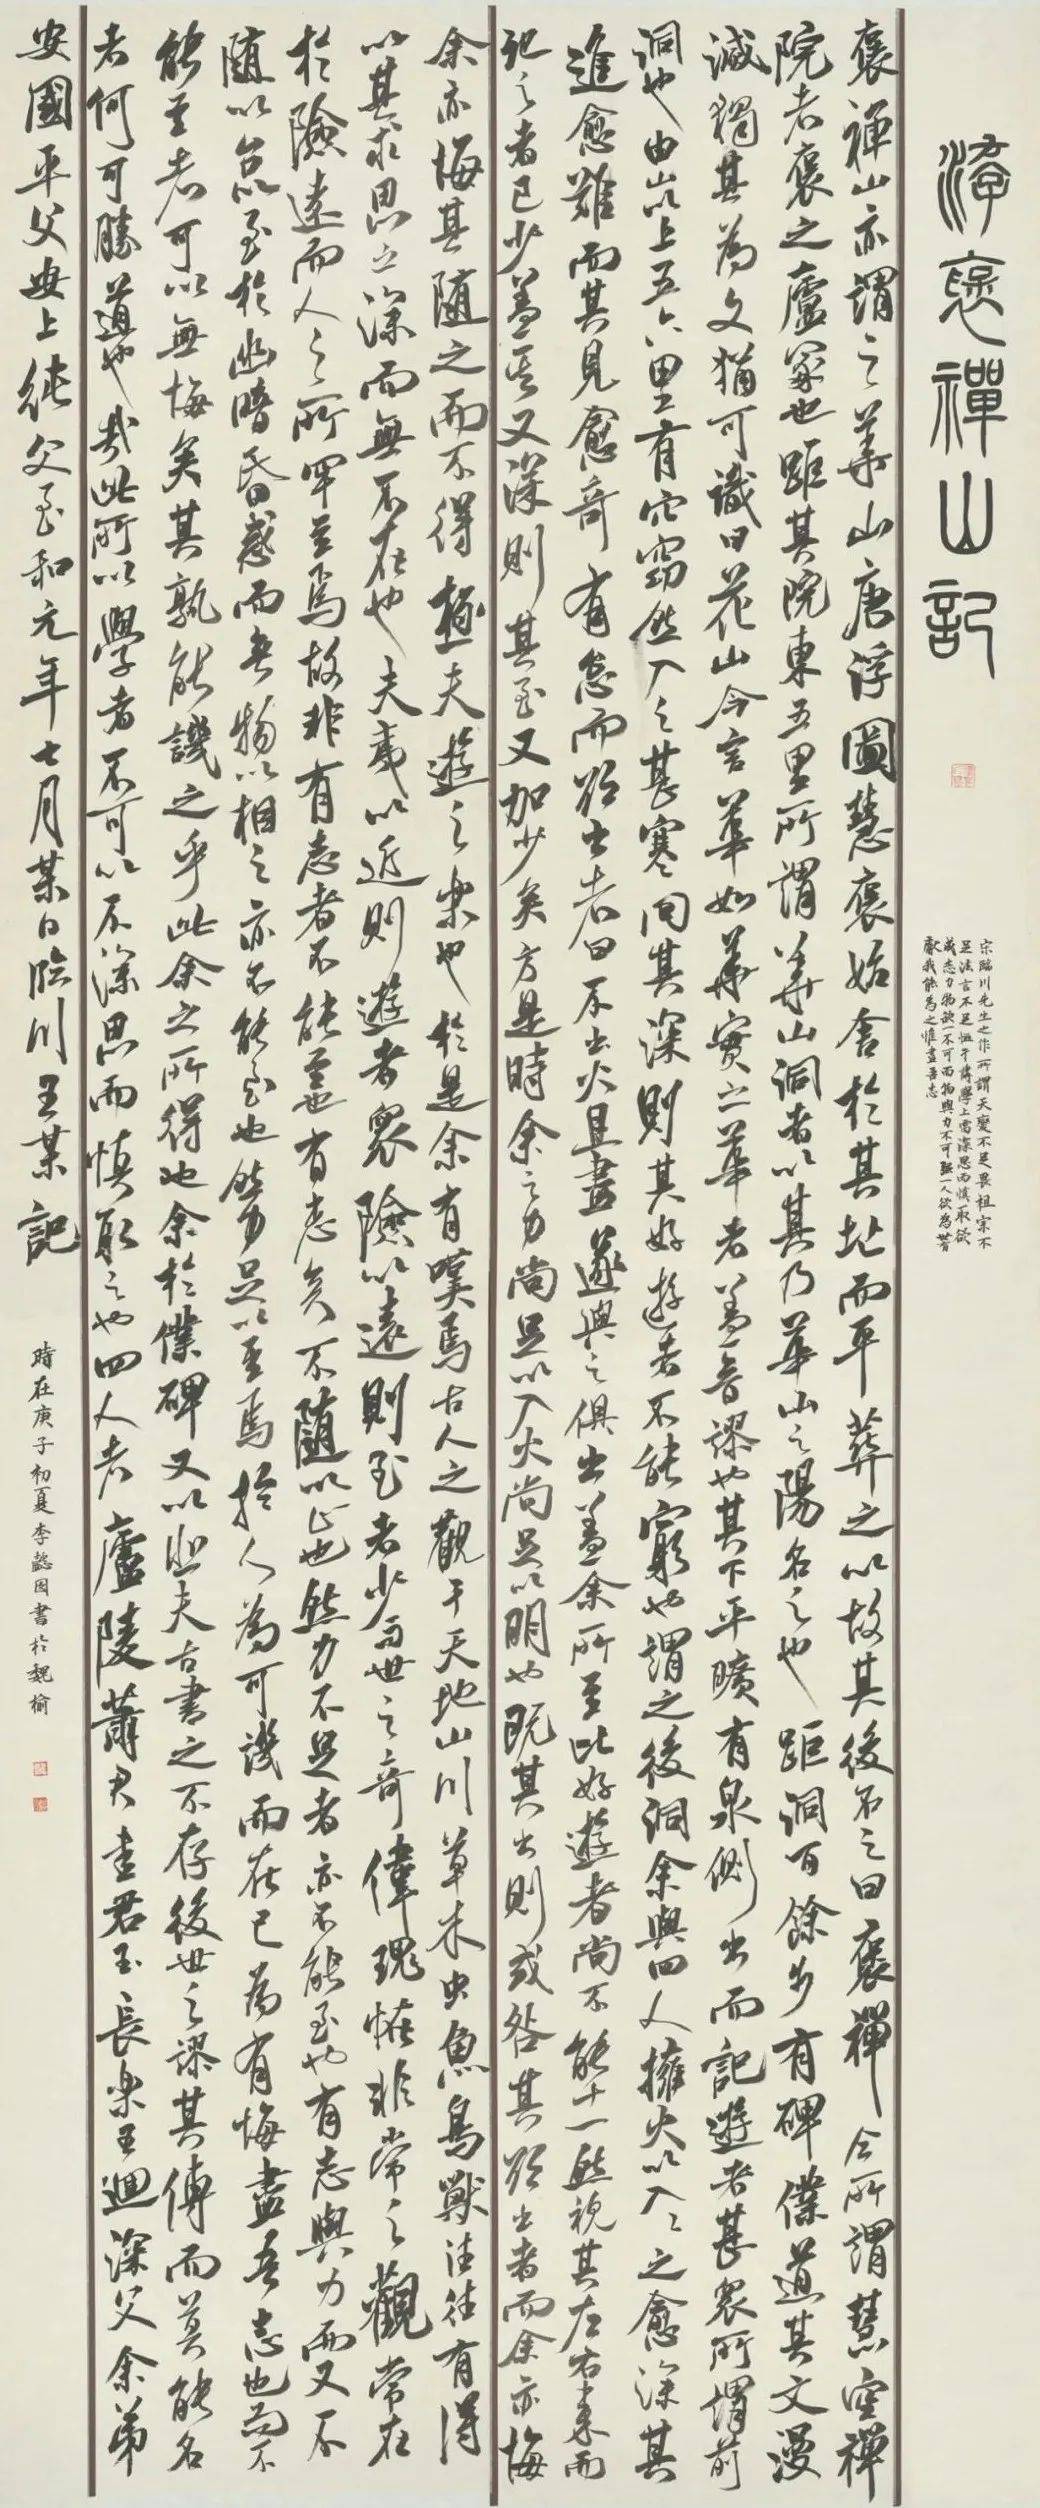 游褒禪山記
宋臨川先生之作所謂天變不足畏祖宗不
足法言不足恤于為學上當深思而慎取欲
成志力物缺一不可而物與力不可強一人欲為苦
獻我能為之惟盡吾志
褒禪山亦謂之華山唐浮圖慧褒始舍於其址而卒葬之以故其後名之曰褒禪今所謂慧空禪
院者褒之廬冢也距其院東五里所謂華山洞者以其乃華山之陽名之也距洞百餘步有碑僕道其文漫
滅獨其為文猶可識曰花山今言華如華實之華者蓋音謬也其下平曠有泉側出而記遊者甚衆所謂前
洞也由山以上五六里有穴窈然入之甚寒問其深則其好遊者不能窮也謂之後洞余與四人擁火以入入之愈深其
進愈難而其見愈奇有怠而欲出者曰不出火且盡遂與之俱出蓋余所至比好遊者尚不能十一然視其左右來而
記之者已少蓋其又深則其至又加少矣方是時余之力尚足以入火尚足以明也既其出則或咎其欲出者而余亦悔
余亦悔其隨之而不得極夫遊之樂也於是余有嘆焉古人之觀于天地山川草木虫魚鳥獸往往有得
以其求思之深而無不在也夫夷以近則遊者衆險以遠則至者少而世之奇偉瑰怪非常之觀常在
於險遠而人之所罕至焉故非有志者不能至也有志矣不隨以止也然力不足者亦不能至也有志與力而又不
隨以怠至於幽暗昏惑而無物以相之亦不能至也然力足以至焉於人為可譏而在己為有悔盡吾志也而不
能至者可以無悔矣其孰能譏之乎此余之所得也余於僕碑又以悲夫古書之不存後世之謬其傳而莫能名
者何可勝道也哉此所以學者不可以不深思而慎取之也四人者廬陵蕭君圭君玉長樂王迴深父余弟
安國平父安上純父至和元年七月某日臨川王某記
時在庚子初夏李懿因書於魏榆